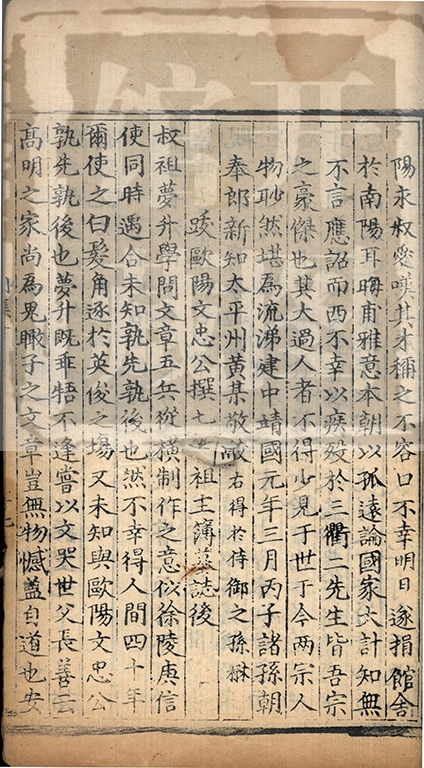 陽永叔愛嘆其才稱之不容口不幸明日遂捐館舍
於南陽耳晦甫雅意本朝以孤遠論國家大計知無
不言應詔而西不幸以疾歿於三衢二先生皆吾宗
之豪傑也其大過人者不得少見于世于今兩宗人
物眇然堪為流涕建中靖國元年三月丙子諸孫朝
奉郎新知太平州黃某敬識右得於侍御之孫楙
跋歐陽文忠公撰七叔祖主簿墓誌後
叔祖夢升學問文章五兵從橫制作之意似徐陵庾信
使同時遇合未知孰先孰後也然不幸得人間四十年
爾使之白髮角逐於英俊之場又未知與歐陽文忠公
孰先孰後也夢升既乖牾不逢嘗以文哭世父長善云
高明之家尚為鬼瞰子之文章豈無物憾蓋自道也安